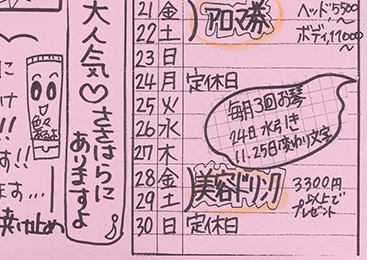 に
け
!!
す!!
ます…
焼け止め
色々
あるよ
大人気♡ささはらに
ありますよ
21 金
22 土
アロマ券
ヘッド5500
~
ボディ11000
~
23 日
24 月 定休日
25 火
26 水
27 木
毎月3回お琴
24日 水引き
11.25日変わり文字
28 金
29 土
美容ドリンク
3300円
以上で
プレゼント
30 日 定休日